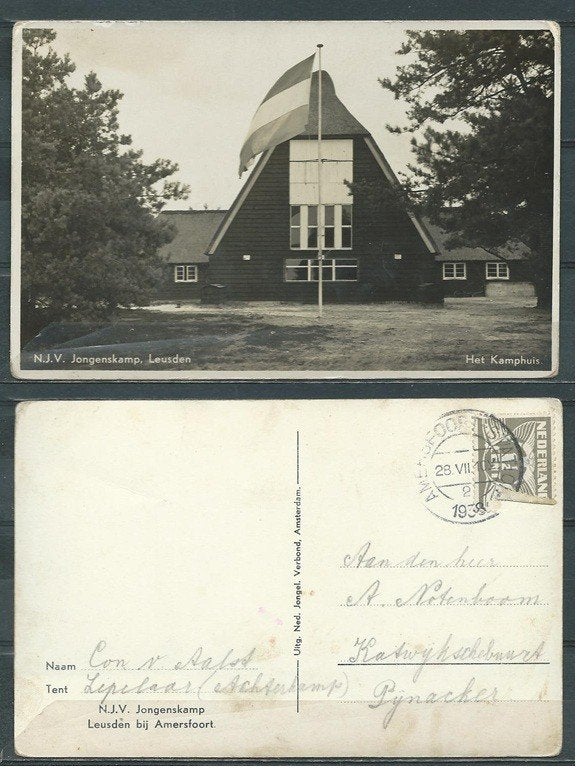 N.J.V. Jongenskamp, Leusden
Het Kamphuis.
AMERSFOORT
28.VII
2
1938
NEDERLAND
CENT
Uitg. Ned. Jongel. Verbond, Amsterdam.
Aan den heer
A. Notenboom
Katwijkschebuurt
Pijnacker
Naam Con v Aalst
Tent Lepelaar (Achterkamp)
N.J.V. Jongenskamp
Leusden bij Amersfoort.